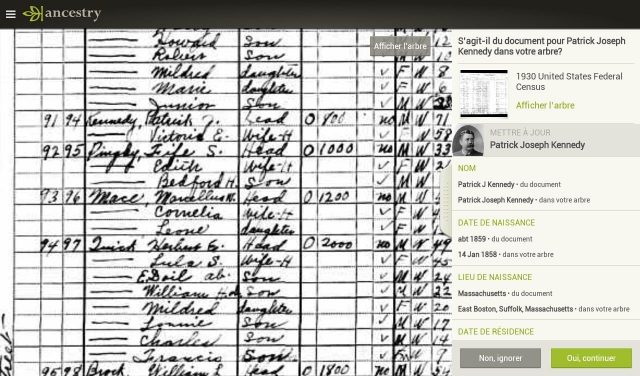 ancestry
Afficher l'arbre
Howard Son
Robert Son
Mildred daughter V F W 8
Marie daughter V F W 6
Junior Son V M W
91 94 Kennedy, Patrick J. Head O 800 no M W 71
Victoria E. Wife-H V F W 58
92 95 Head O 1000 no M W 33
Edith Wife-H V F W
Bedford H. Son V M W
93 96 Mace, Head O 1200 no M W
Cornelia Wife-H V F W
Leone daughter V F W
94 97 Quick Head O 2000 no M W 49
Lula S. Wife-H V F W 45
Son V M W 24
William H. Son V M W 22
Mildred daughter V F W 20
Son V M W 17
Charles Son V M W 14
Francis Son V W 7
95 98 Brock, William L Head O 1800 no M W 54
S'agit-il du document pour Patrick Joseph
Kennedy dans votre arbre?
1930 United States Federal
Census
Afficher l'arbre
METTRE À JOUR
Patrick Joseph Kennedy
NOM
Patrick J Kennedy • du document
Patrick Joseph Kennedy • dans votre arbre
DATE DE NAISSANCE
abt 1859 • du document
14 Jan 1858 • dans votre arbre
LIEU DE NAISSANCE
Massachusetts • du document
East Boston, Suffolk, Massachusetts • dans votre arbre
DATE DE RÉSIDENCE
Non, ignorer
Oui, continuer